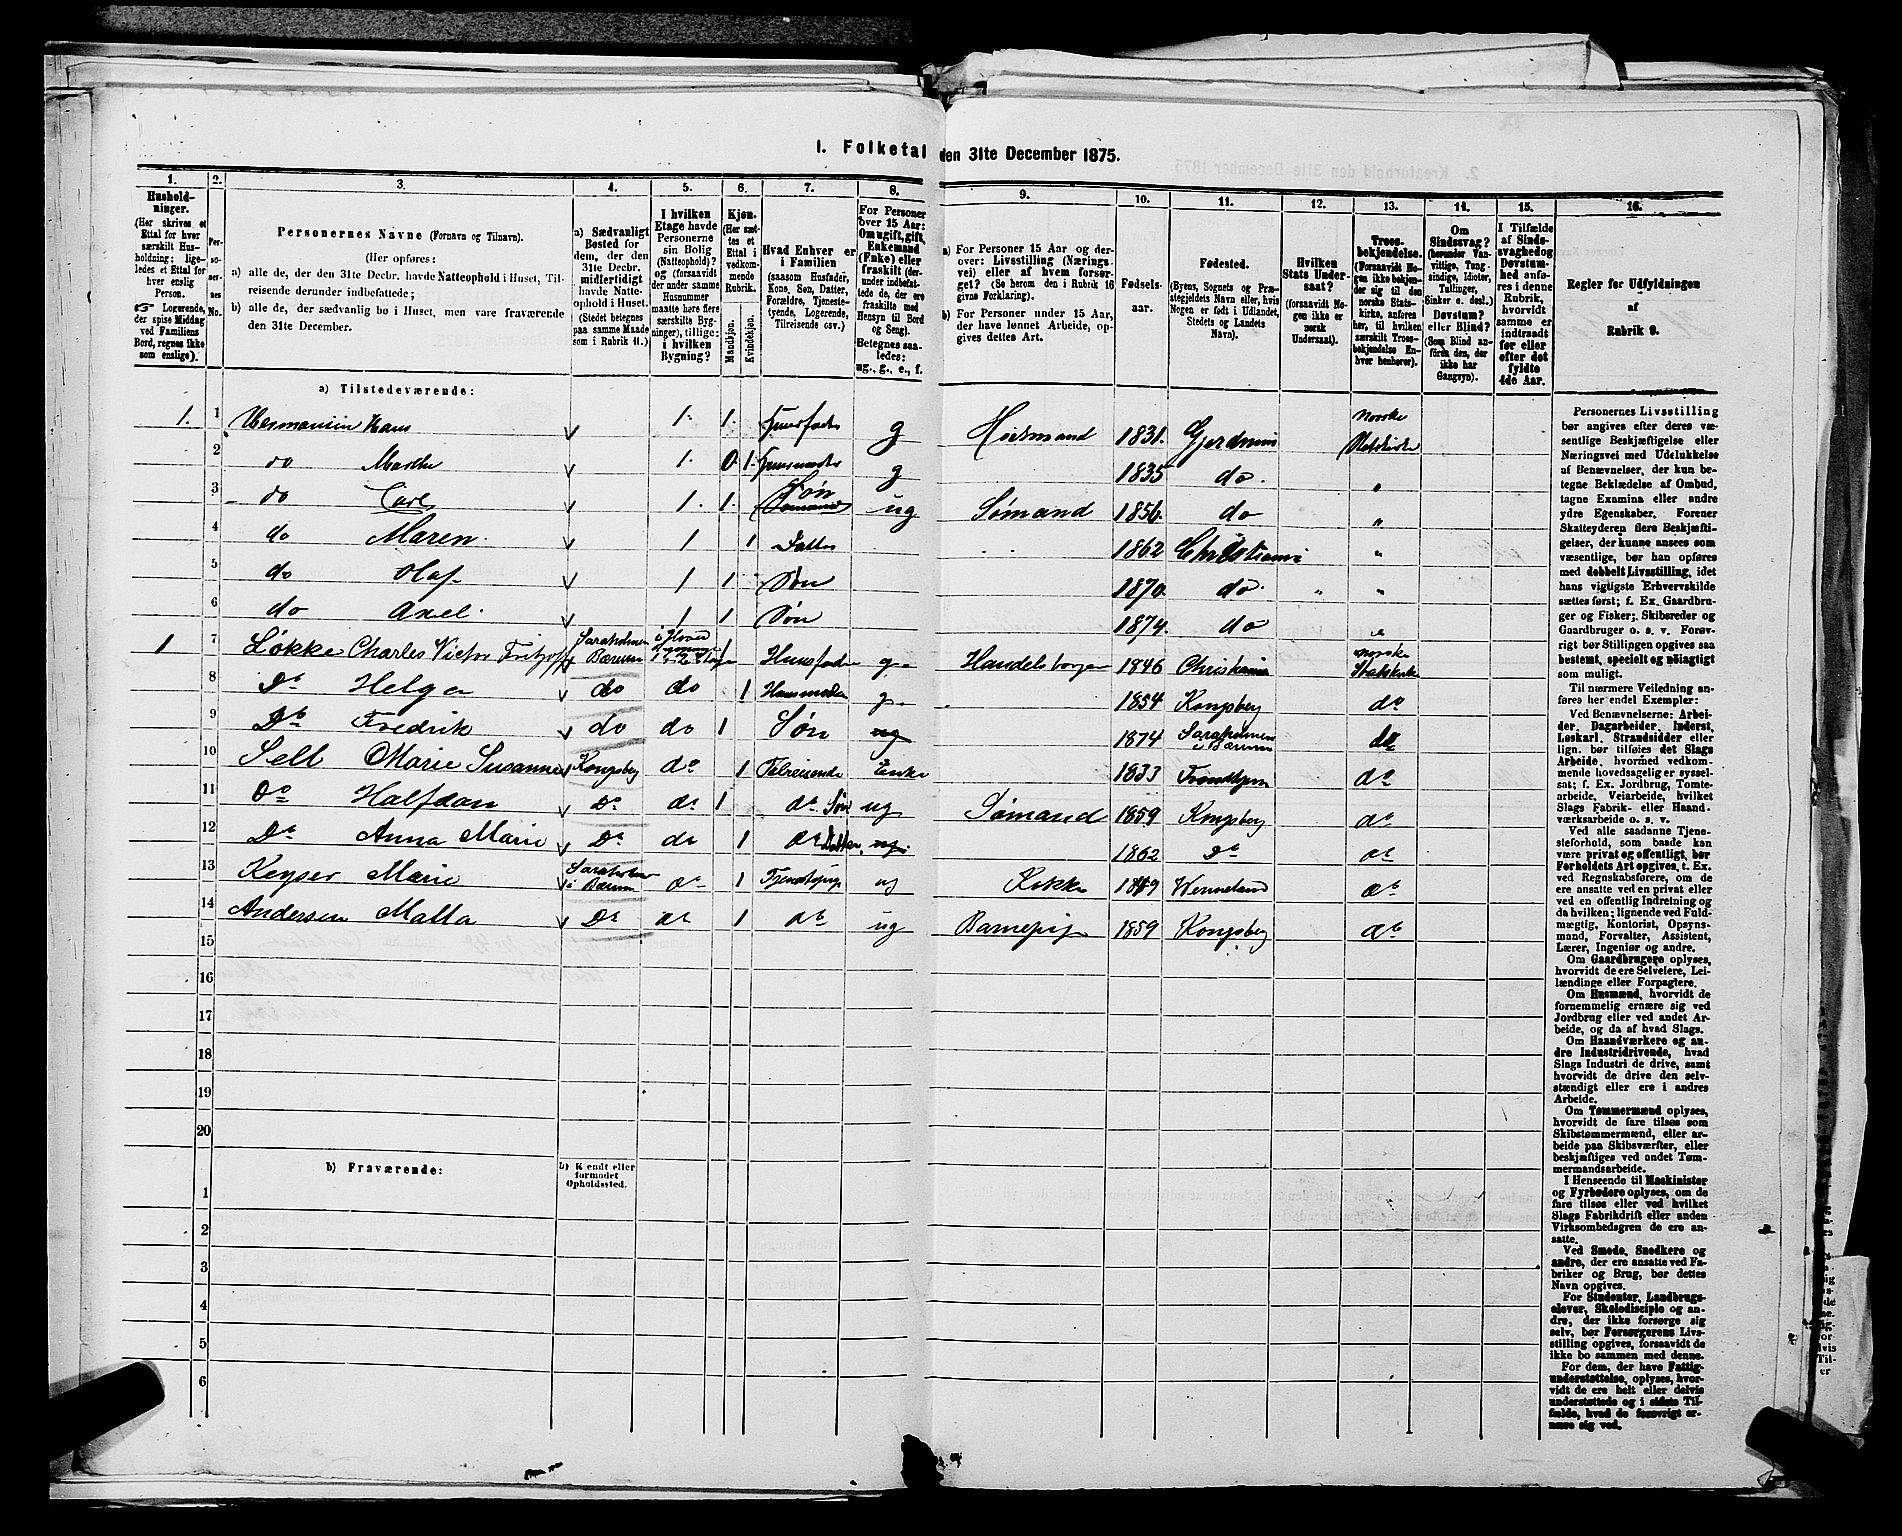 1. Folketal den 31te December 1875.
1. 2. 3. 4. 5. 6. 7. 8. 9. 10. 11. 12. 13. 14. 15. 16.
Hushold-
ninger.
(Her skrives et
Ettal for hver
særskilt Hus-
holdning; lige-
ledes et Ettal for
hver enslig
Person.
☞ Logerende,
der spise Middag
ved Familiens
Bord, regnes ikke
som enslige).
Per-
so-
ner-
nes
No.
Personernes Navne (Fornavn og Tilnavn).
(Her opføres:
a) alle de, der den 31te Decbr. havde Natteophold i Huset, Til-
reisende derunder indbefattede;
b) alle de, der sædvanlig bo i Huset, men vare fraværende
den 31te December.
a) Sædvanligt
Bosted for
dem, der den
31te Decbr.
midlertidigt
havde Natte-
ophold i Huset.
(Stedet betegnes
paa samme Maade
som i Rubrik 11.)
I hvilken
Etage havde
Personerne
sin Bolig
(Natteophold)?
og (forsaavidt
der under samme
Husnummer
maatte høre flere
særskilte Byg-
ninger), tillige:
i hvilken
Bygning?
Kjøn.
(Her sæt-
tes et
Ettal i
vedkom-
mende
Rubrik.
Mandkjøn.
Kvindekjøn.
Hvad Enhver er
i Familien
(saasom Husfader,
Kone, Søn, Datter,
Forældre, Tjeneste-
tyende, Logerende,
Tilreisende osv.)
For Personer
over 15 Aar:
Om ugift, gift,
Enkemand
(Enke) eller
fraskilt (der-
under indbefat-
tede de, der ere
fraskilte med
Hensyn til Bord
og Seng).
Betegnes saa-
ledes:
ug., g., e., f.
a) For Personer 15 Aar og der-
over: Livsstilling (Nærings-
vei) eller af hvem forsør-
get? (Se herom den i Rubrik 16
givne Forklaring).
b) For Personer under 15 Aar,
der have lønnet Arbeide, op-
gives dettes Art.
Fødsels-
aar.
Fødested.
(Byens, Sognets og Præ-
stegjeldets Navn eller, hvis
Nogen er født i Udlandet,
Stedets og Landets
Navn).
Hvilken
Stats Under-
saat?
(forsaavidt No-
gen ikke er
norsk
Undersaat).
Troes-
bekjendelse.
(Forsaavidt No-
gen ikke bekjen-
der sig til den
norske Stats-
kirke, anføres
her, til hvilken
særskilt Troes-
bekjendelse En-
hver henhører).
Om
Sindssvag?
(herunder Van-
vittige, Tung-
sindige, Idioter,
Tullinger,
Sinker o. desl.)
Døvstum?
eller Blind?
(Som Blind an-
føres den, der
ikke har
Gangsyn).
I Tilfælde
af Sinds-
svaghed og
Døvstum-
hed anfø-
res i denne
Rubrik,
hvorvidt
samme er
indtraadt
før eller
efter det
fyldte
4de Aar.
Regler for Udfyldningen
af
Rubrik 9.
a) Tilstedeværende:
1. 1 Hermansen Hans v 1. 1. Huusfader g 1831. Norske Statskirke
2 do Marthe v 1. 0 1. Huusmoder g 1835 do. "
3 do Carl v 1. 1. Søn ug Sømand 1856. do "
4 do Maren. v 1 1 Datter 1862 Christiania "
5 do Olaf. v 1 1. Søn 1870. do. " "
6 do Axel. v 1 1 Søn 1874. do "
1 7 Løkke Charles Victor Fritjoff Saraholmen Bærum 1 Huusfader g. Handelsborger 1846 Christiania norske Statskirke
8 Do Helga v do do 1 Huusmoder g. 1854 Kongsberg do
9 Do Fredrik v do do 1 Søn ug 1874 Saraholmen i Bærum do
10 Sell Marie Susanne Kongsberg do 1 Tilreisende Enke 1833 Trondhjem do
11 Do Halfdan v Do do 1 do Søn ug Sømand 1859 Kongsberg do
12 Do Anna Marie v Do do 1 do Datter ug. 1862 Do do
13 Keyser Marie v Saraholmen i Bærum do 1 Tjenestepige ug Kokke 1849 Wermeland do
14 Andersen Matta v Do do 1 do ug Barnepige 1859 Kongsberg do
15
16
17
18
19
20
b) Fraværende:
b) Kjendt eller
formodet
Opholdssted.
1
2
3
4
5
6
Personernes Livsstilling
bør angives efter deres væ-
sentlige Beskjæftigelse eller
Næringsvei med Udelukkelse
af Benævnelser, der kun be-
tegne Beklædelse af Ombud,
tagne Examina eller andre
ydre Egenskaber. Forener
Skatteyderen flere Beskjæfti-
gelser, der kunne ansees som
væsentlige, bør han opføres
med dobbelt Livsstilling, idet
hans vigtigste Erhvervskilde
sættes først; f. Ex. Gaardbru-
ger og Fisker; Skibsreder og
Gaardbruger o. s. v. Forøv-
rigt bør Stillingen opgives saa
bestemt, specielt og nöiagtigt
som muligt.
Til nærmere Veiledning an-
føres her endel Exempler:
Ved Benævnelserne: Arbei-
der, Dagarbeider, Inderst,
Løskarl, Strandsidder eller
lign. bør tilføies det Slags
Arbeide, hvormed vedkom-
mende hovedsagelig er syssel-
sat; f. Ex. Jordbrug, Tomte-
arbeide, Veiarbeide, hvilket
Slags Fabrik- eller Haand-
værksarbeide o. s. v.
Ved alle saadanne Tjene-
steforhold, som baade kan
være privat og offentligt, bør
Forholdets Art opgives, t. Ex.
ved Regnskabsførere, om de
ere ansatte ved en privat eller
ved en offentlig Indretning og
da hvilken; lignende ved Fuld-
mægtig, Kontorist, Opsyns-
mand, Forvalter, Assistent,
Lærer, Ingeniør og andre.
Om Gaardbrugere oplyses,
hvorvidt de ere Selveiere, Lei-
lændinge eller Forpagtere.
Om Husmænd, hvorvidt de
fornemmelig ernære sig ved
Jordbrug eller ved andet Ar-
beide, og da af hvad Slags.
Om Haandværkere og an-
dre Industridrivende, hvad
Slags Industri de drive, samt
hvorvidt de drive den selv-
stændigt eller ere i andres
Arbeide.
Om Tømmermænd oplyses,
hvorvidt de fare tilsøs som
Skibstømmermænd, eller ar-
beide paa Skibsværfter, eller
beskjæftiges ved andet Tøm-
mermandsarbeide.
I Henseende til Maskinister
og Fyrbødere oplyses, om de
fare tilsøs eller ved hvilket
Slags Fabrikdrift eller anden
Virksomhedsgren de ere an-
satte.
Ved Smede, Snedkere og
andre, der ere ansatte ved Fa-
briker og Brug, bør dettes
Navn opgives.
For Studenter, Landbrugs-
elever, Skoledisciple og an-
dre, der ikke forsørge sig
selv, bør Forsørgerens Livs-
stilling opgives, forsaavidt de
ikke bo sammen med denne.
For dem, der have Fattig-
understøttelse, oplyses, hvor-
vidt de ere helt eller delvis
understøttede og i sidste Til-
fælde, hvad de forøvrigt er-
nære sig ved.